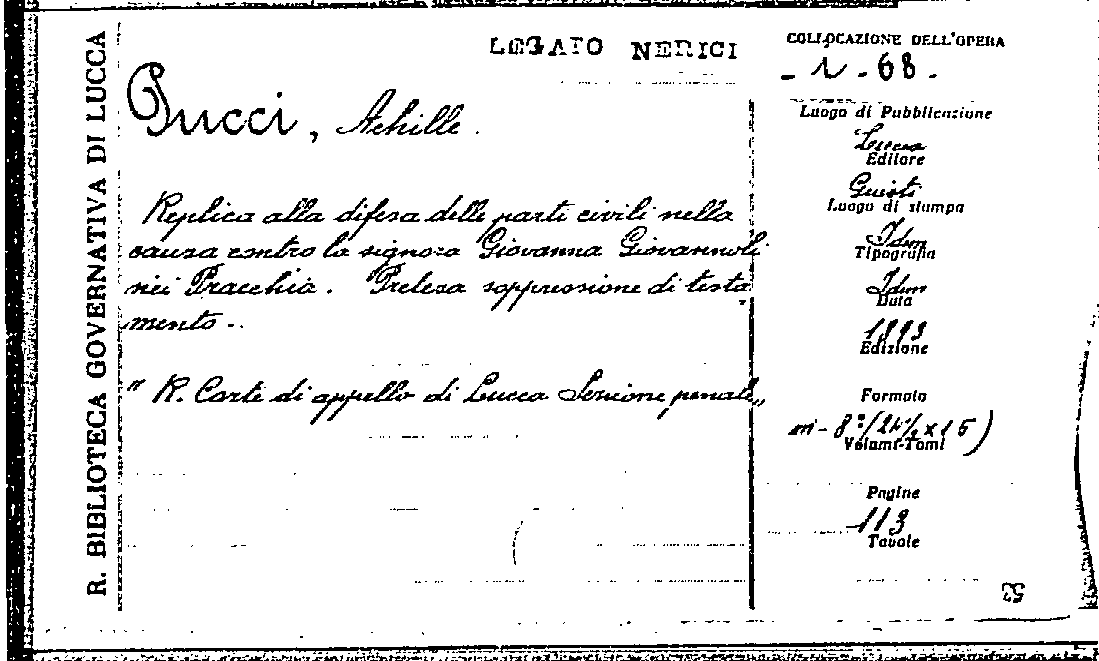 R. BIBLIOTECA GOVERNATIVA DI LUCCA
LEGATO NERICI
COLLOCAZIONE DELL'OPERA
- 1 - 68 -
Pucci, Achille.
Replica alla difesa delle parti civili nella
causa contro la signora Giovanna Giovannoli
nei Pracchia. Pretesa soppressione di testa
mento..
" R. Corte di appello di Lucca Sezione penale „
Luogo di Pubblicazione
Lucca
Editore
Giusti
Luogo di stampa
Idem
Tipografia
Idem
Data
1893
Edizione
Formato
in-8º/24½ x 15)
Volumi-Tomi
Pagine
113
Tavole